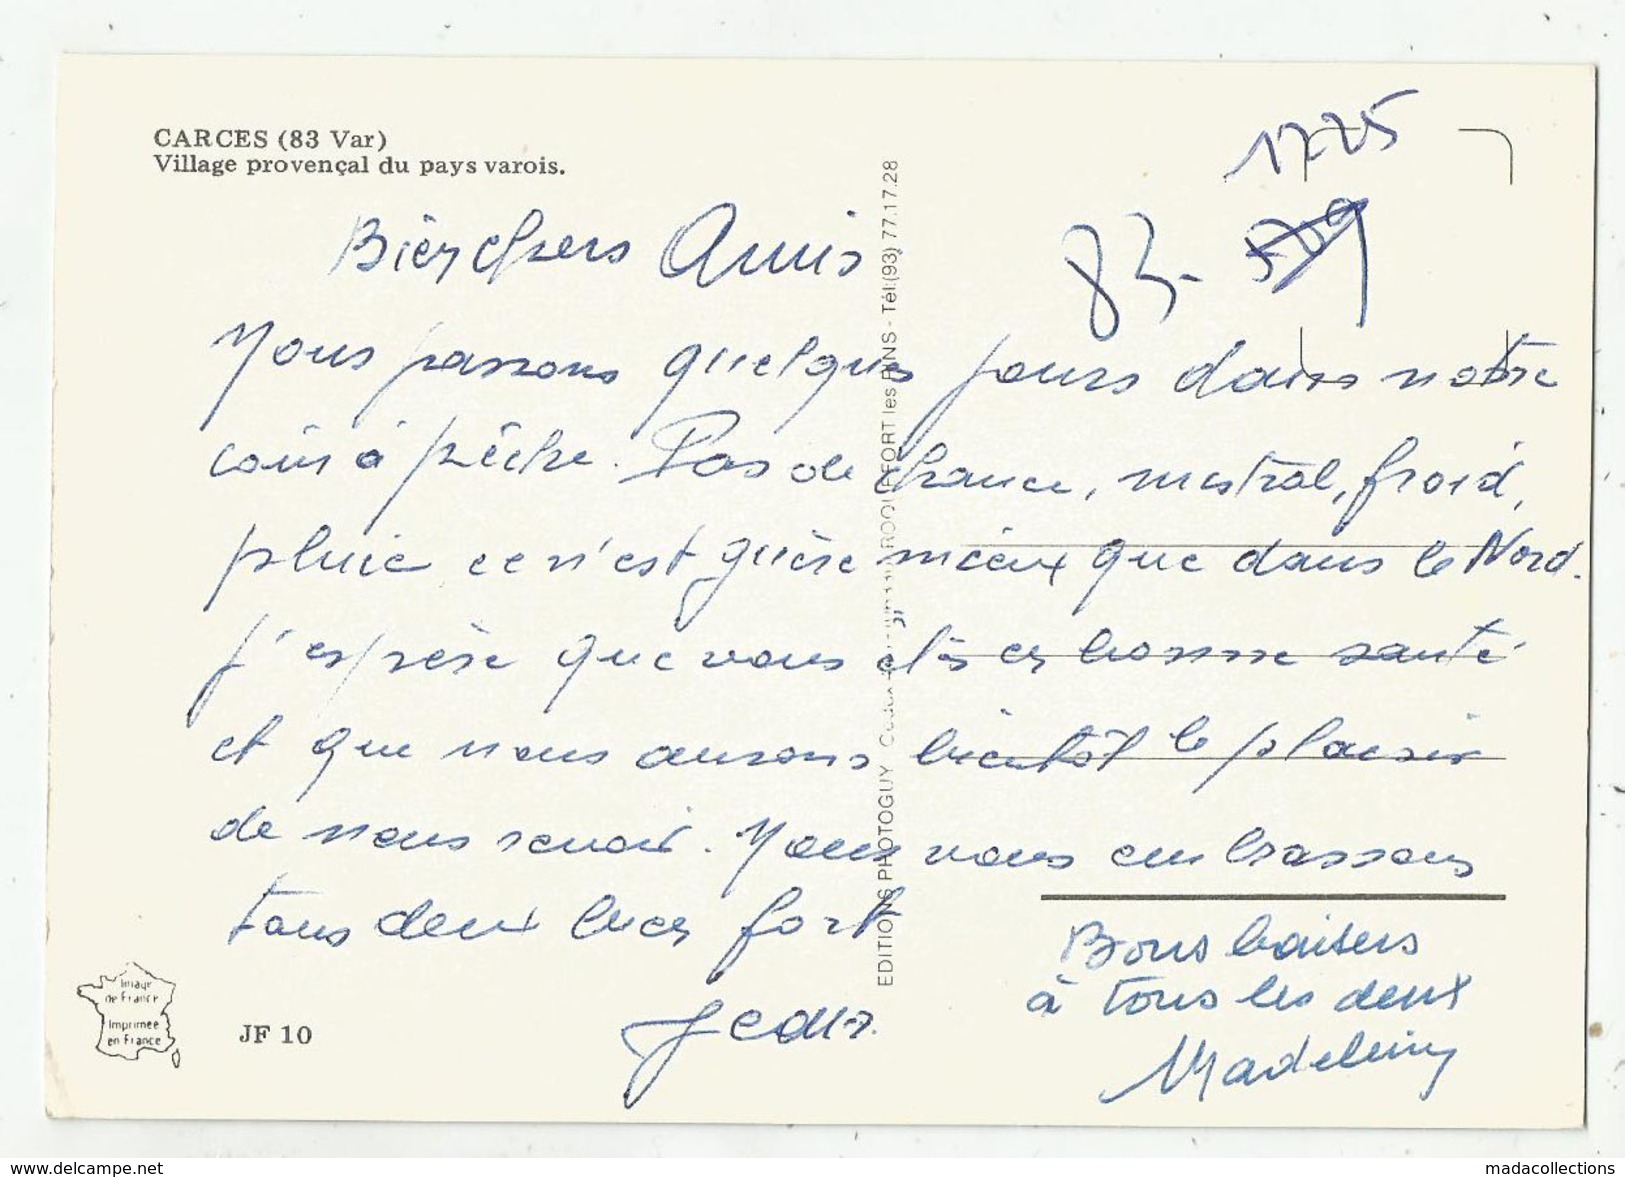 CARCES (83 Var)
Village provençal du pays varois.
1725
83-
Bien chers Amis
Nous passons quelques jours dans notre
coin à pêche. Pas de chance, mistral, froid,
pluie ce n'est guère mieux que dans le Nord.
J'espère que vous etes en bonne santé
et que nous aurons bientôt le plaisir
de nous revoir. Nous vous embrassons
tous deux bien fort
Jean.
Bons baisers
à tous les deux
Madeleine
EDITIONS PHOTOGUY ROQUEFORT les PINS - Tél.(93) 77.17.28
Image
de France
Imprimée
en France
JF 10
www.delcampe.net
madacollections